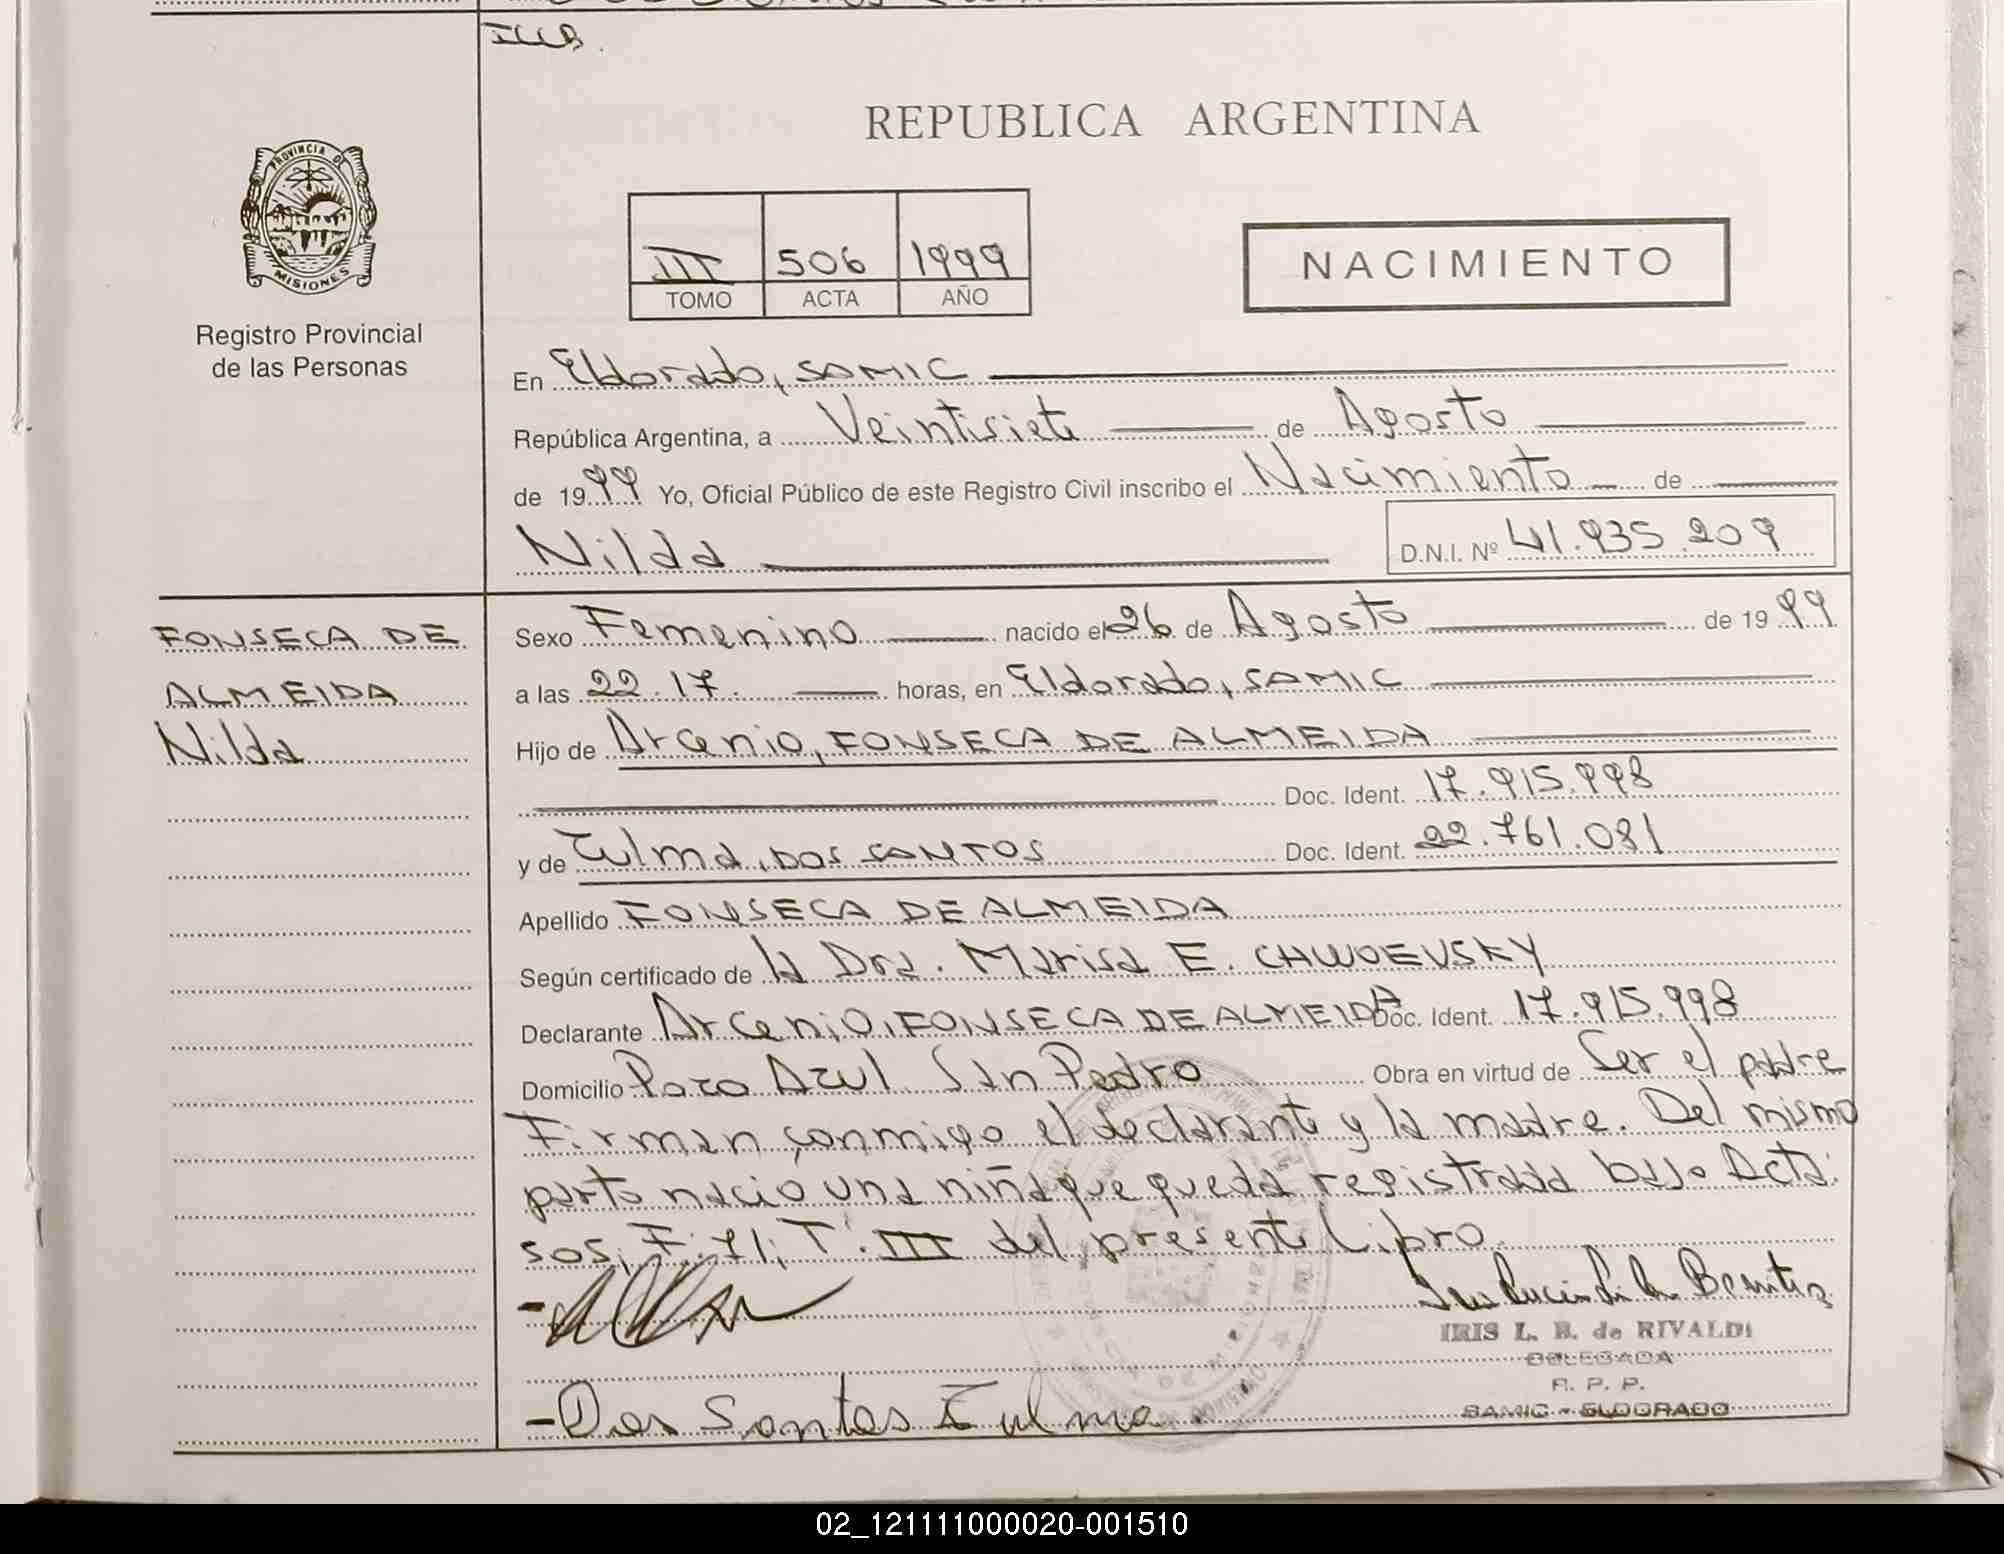 ILLB.
REPUBLICA ARGENTINA
PROVINCIA DE
MISIONES
Registro Provincial
de las Personas
III 506 1999
TOMO ACTA AÑO
NACIMIENTO
En Eldorado, SAMIC
República Argentina, a Veintisiete de Agosto
de 1999 Yo, Oficial Público de este Registro Civil inscribo el Nacimiento de
Nilda D.N.I. Nº 41.935.209
FONSECA DE
ALMEIDA
Nilda
Sexo Femenino nacido el 26 de Agosto de 1999
a las 22.17. horas, en Eldorado, SAMIC
Hijo de Arcenio, FONSECA DE ALMEIDA
Doc. Ident. 17.915.998
y de Zulma, DOS SANTOS Doc. Ident. 22.761.081
Apellido FONSECA DE ALMEIDA
Según certificado de la Dra. Marisa E. CHWOEVSKY
Declarante Arcenio, FONSECA DE ALMEIDA Doc. Ident. 17.915.998
Domicilio Pozo Azul San Pedro Obra en virtud de Ser el padre
Firman conmigo el declarante y la madre. Del mismo
parto nacio una niña que queda registrada bajo Acta:
505, F: 71, T: III del presente Libro.
IRIS L. B. de RIVALDI
DELEGADA
R. P. P.
SAMIC - ELDORADO
- Dos Santos Zulma.
02_121111000020-001510